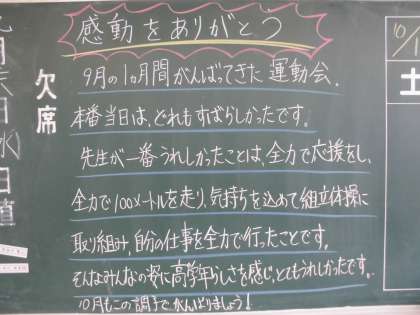 感動をありがとう
9月の1ヶ月間がんばってきた運動会.
本番当日は、どれもすばらしかったです。
先生が一番うれしかったことは、全力で応援をし、
全力で100メートルを走り、気持ちを込めて組立体操に
取り組み、自分の仕事を全力で行ったことです。
そんなみんなの姿に高学年らしさを感じ、とてもうれしかったです。
10月もこの調子でがんばりましょう!
欠席
日直
10/1
土